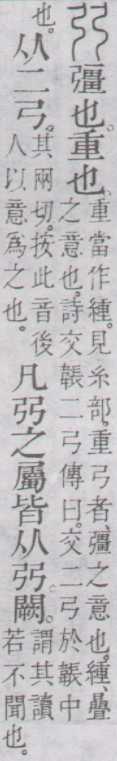 弜彊也。重也。重當作緟。見糸部。重弓者彊之意也。緟、曡
之意也。詩交韔二弓傳曰。交二弓於韔中
也。从二弓。其兩切。按此音後
人以意爲之也。
凡弜之屬皆从弜。闕。謂其讀
若不聞也。